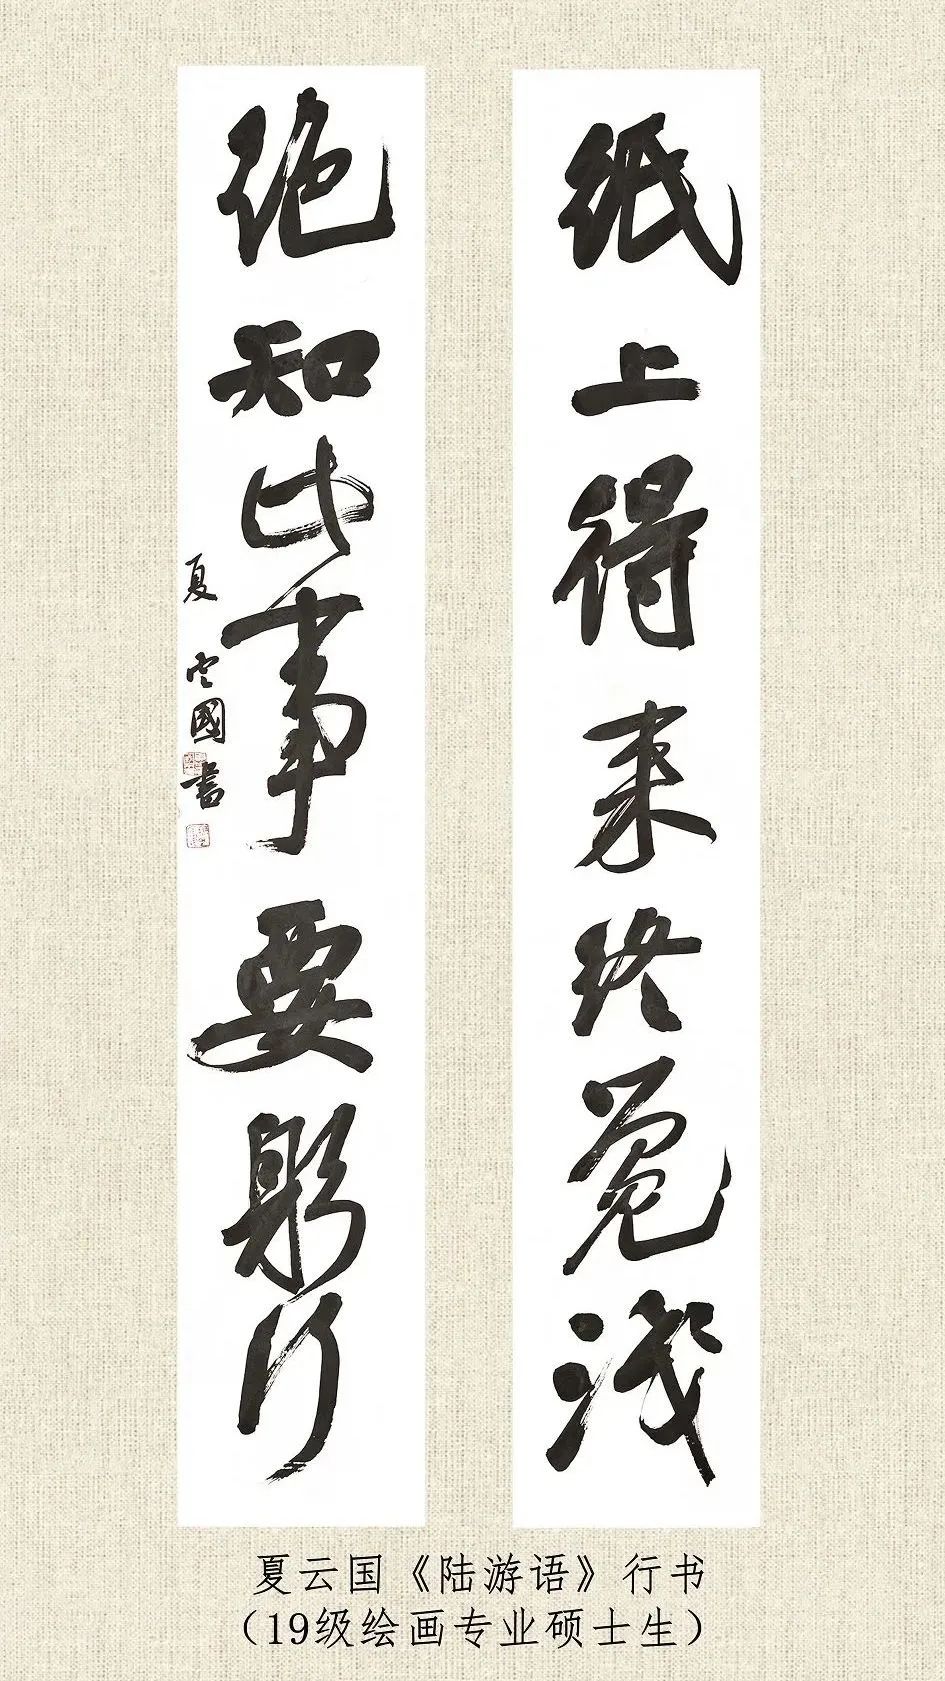 纸上得来终觉浅
绝知此事要躬行
夏云國書
夏云国《陆游语》行书
（19级绘画专业硕士生）